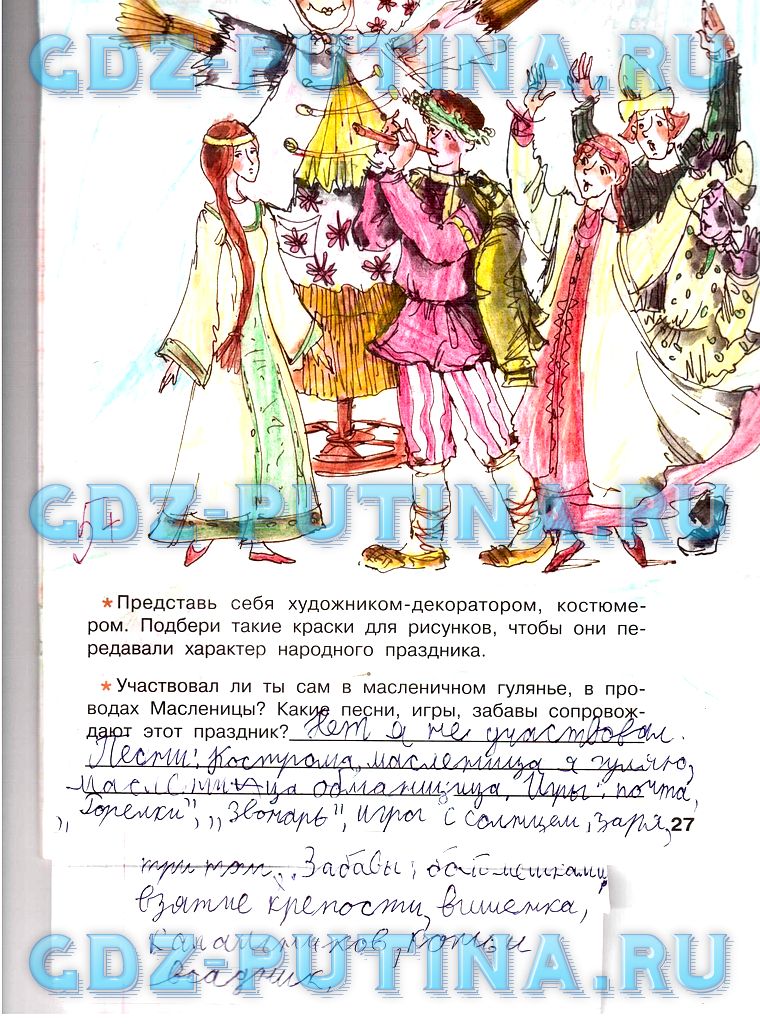 GDZ-PUTINA.RU
5+
GDZ-PUTINA.RU
*Представь себя художником-декоратором, костюме-
ром. Подбери такие краски для рисунков, чтобы они пе-
редавали характер народного праздника.
*Участвовал ли ты сам в масленичном гулянье, в про-
водах Масленицы? Какие песни, игры, забавы сопровож-
дают этот праздник? Нет я не участвовал.
Песни: Кострома, масленица я гуляю,
масленица обманщица. Игры: почта,
"Горелки", "Звонарь", игры с солнцем, заря, 27
Забавы:
взятие крепости, вишенка,
GDZ-PUTINA.RU
всадник.